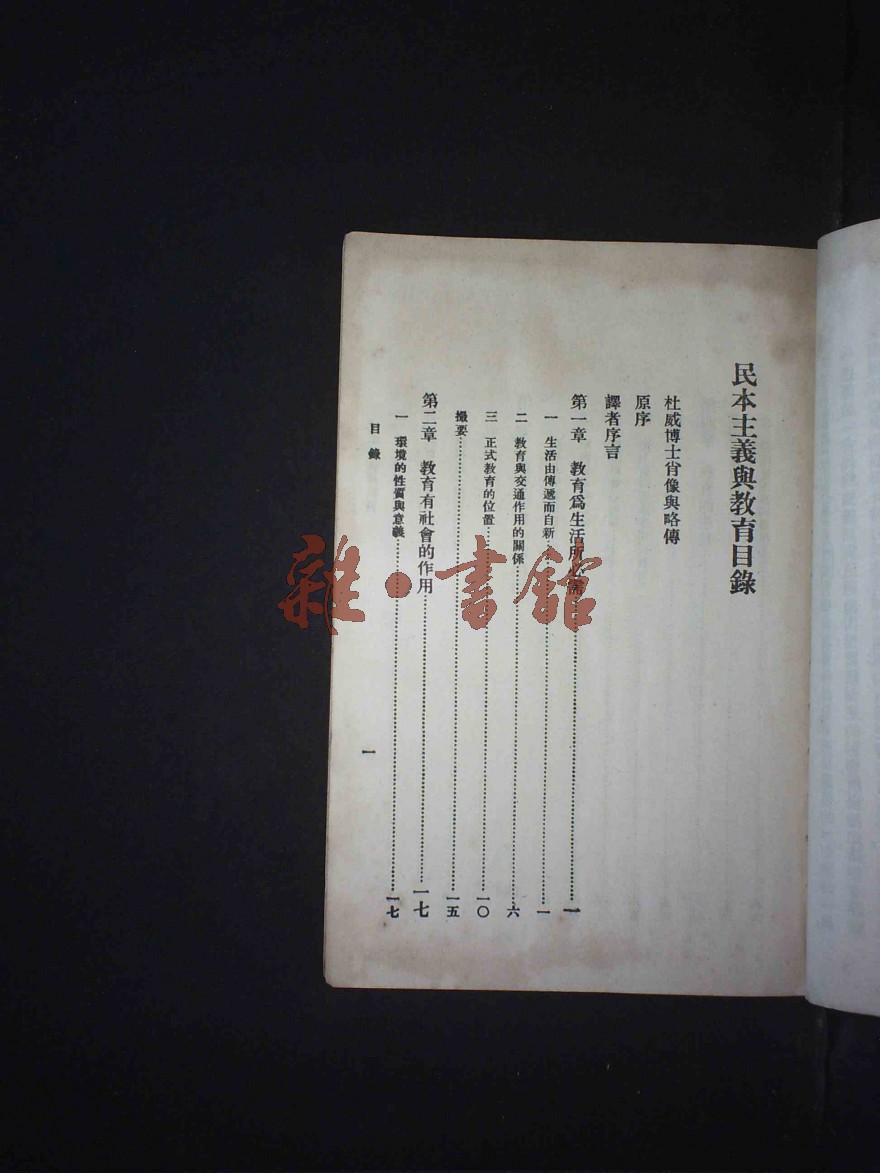 民本主義與教育目錄
杜威博士肖像與略傳
原序
譯者序言
第一章 教育爲生活所必需……一
一 生活由傳遞而自新……一
二 教育與交通作用的關係……六
三 正式教育的位置……一〇
撮要……一五
第二章 教育有社會的作用……一七
一 環境的性質與意義……一七
目錄
一
雜·書館